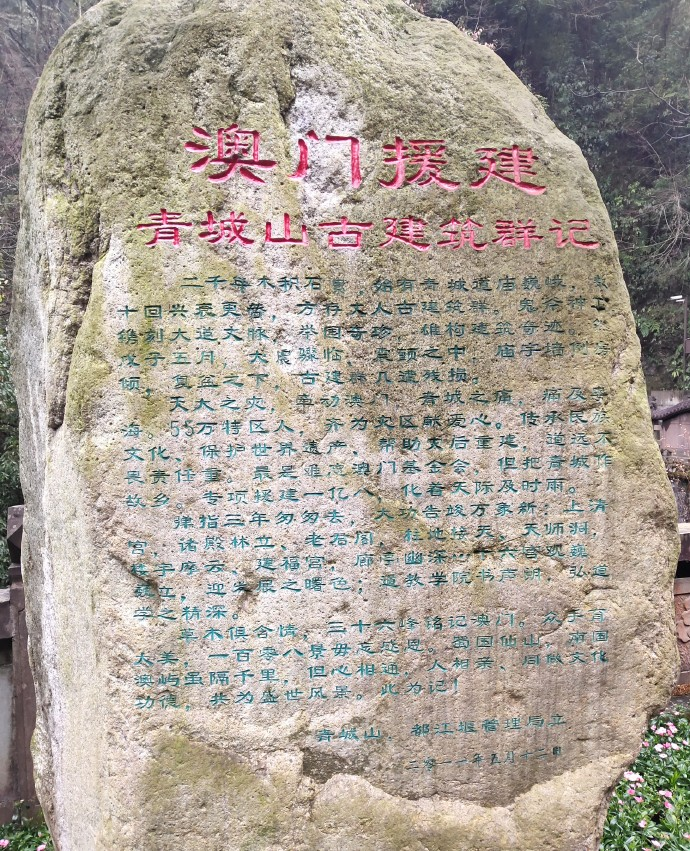 澳门援建
青城山古建筑群记
二千年木积石累，始有青城道庙巍峨，
十回兴衰更替，方有文人古建筑群。鬼斧神工
镌刻大道文脉，举国奇珍，雄构建筑奇迹。
戊子五月，大震骤临，震颤之中，庙宇墙倒
倾，复盆之下，古建群几遭残损。
天大之灾，牵动澳门，青城之痛，痛及
海。55万特区人，齐为灾区献爱心。传承民族
文化、保护世界遗产，帮助灾后重建，道远不
畏责任重。最是难忘澳门基金会，但把青城作
故乡。专项援建一亿八，化着天际及时雨。
弹指三年匆匆去，大功告竣万象新：上清
宫，诸殿林立、老君阁，柱地标天、天师洞，
栋宇摩云、建福宫，廊回幽深
耸立，迎发展之曙色；道教学院书声朗，弘道
学之精深。
草木俱含情，三十六峰铭记澳门。众手百
大美，一百零八景毋忘感恩。蜀国仙山，南国
澳屿虽隔千里，但心相通，人相亲、同做文化
功德，共为盛世风景。此为记！
青城山·都江堰管理局立
二零一一年五月十二日